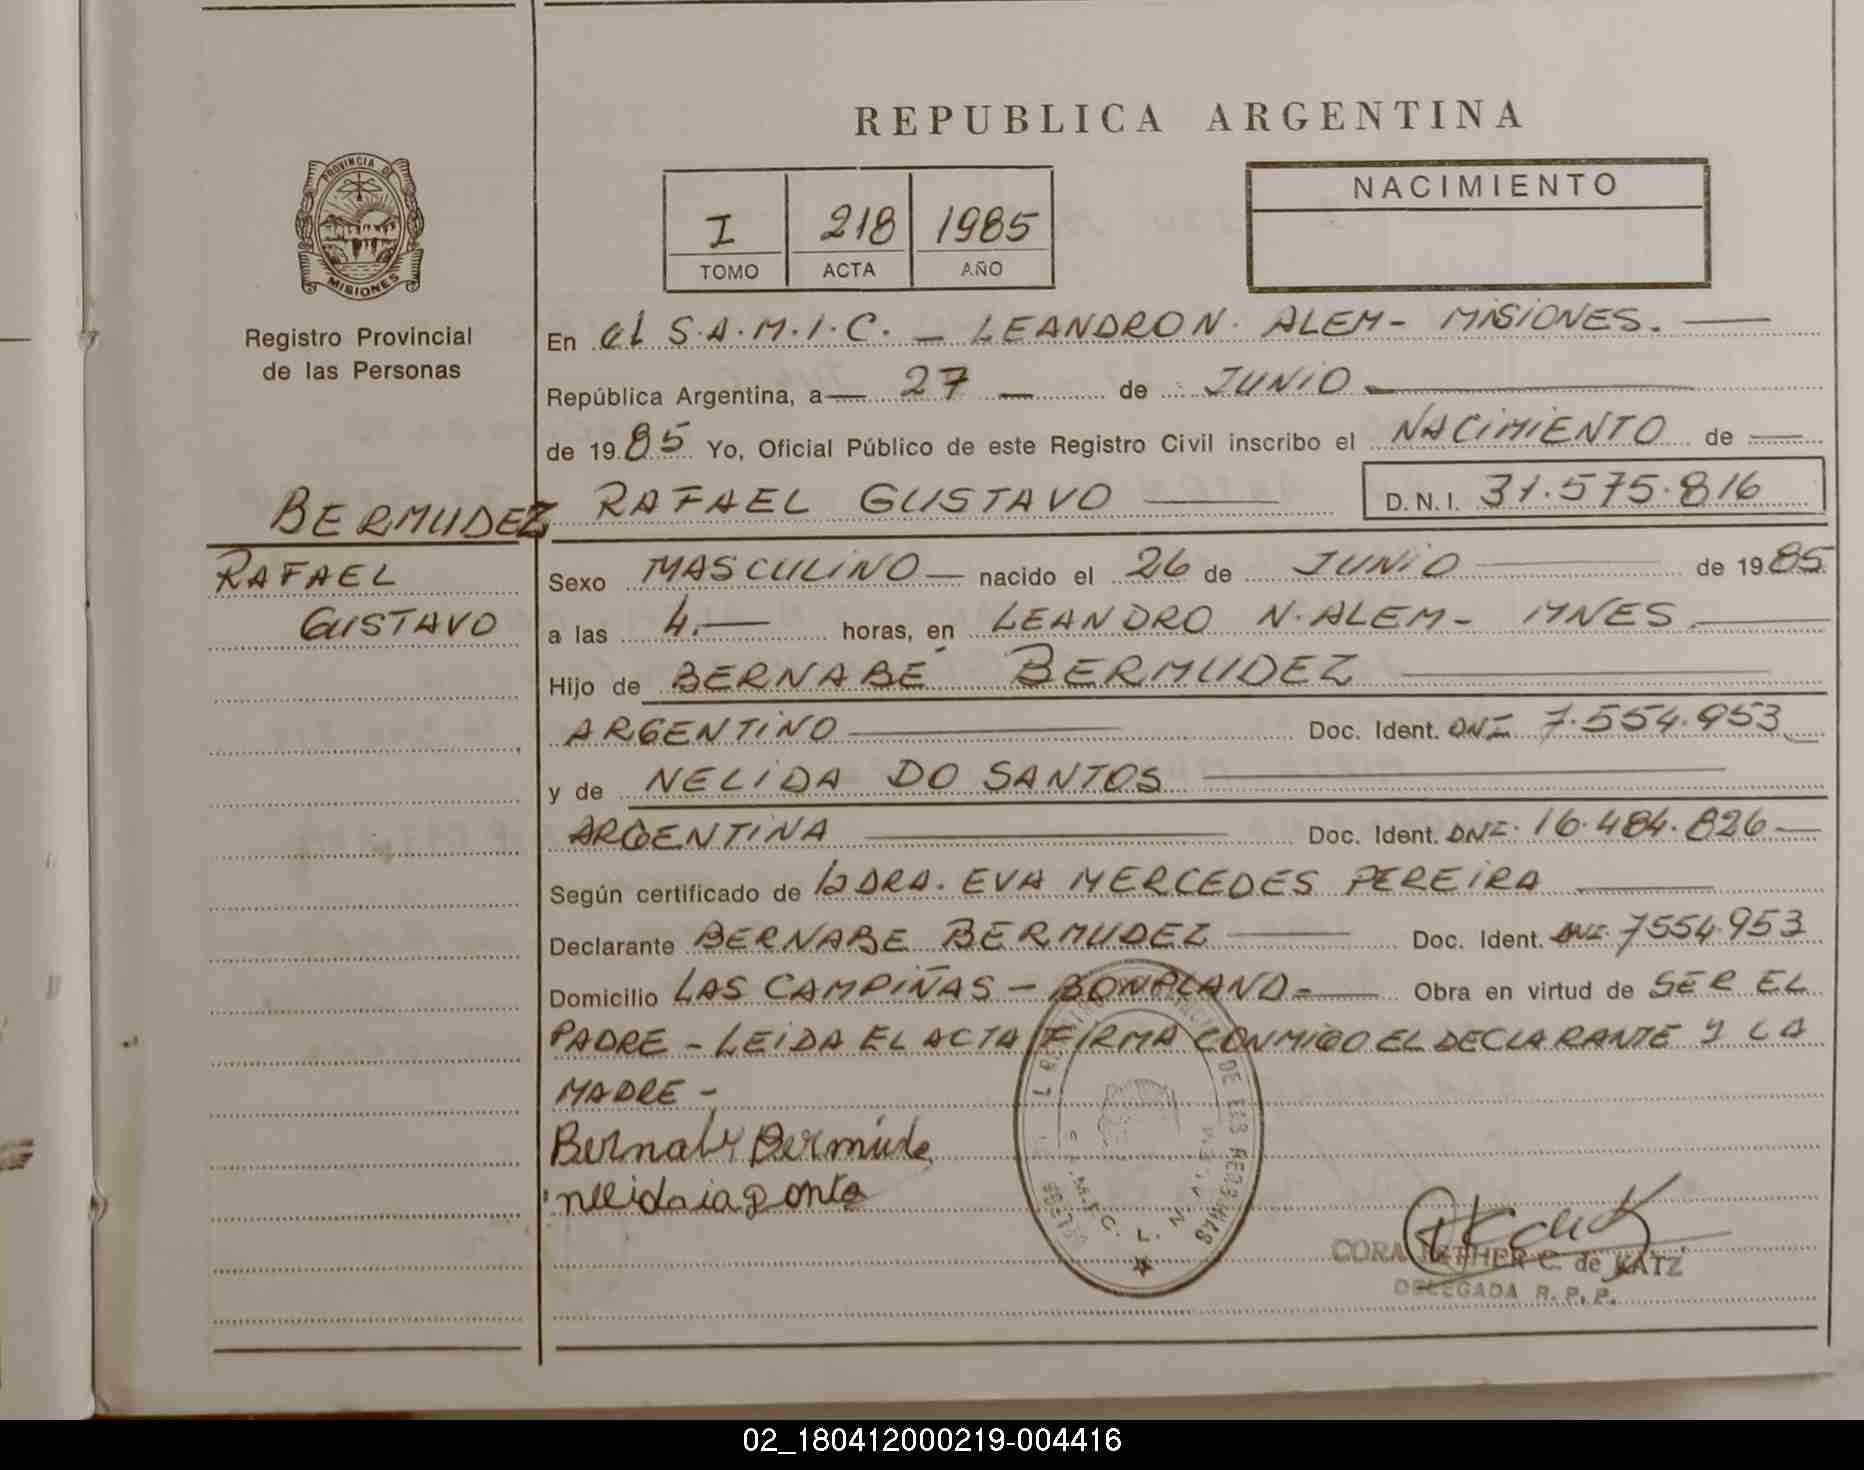 REPUBLICA ARGENTINA
PROVINCIA DE
MISIONES
Registro Provincial
de las Personas
I 218 1985
TOMO ACTA AÑO
NACIMIENTO
En el S.A.M.I.C. - LEANDRO N. ALEM - MISIONES.
República Argentina, a 27 de JUNIO
de 1985 Yo, Oficial Público de este Registro Civil inscribo el NACIMIENTO de
BERMUDEZ RAFAEL GUSTAVO D.N.I. 31.575.816
RAFAEL
GUSTAVO
Sexo MASCULINO nacido el 26 de JUNIO de 1985
a las 4. horas, en LEANDRO N. ALEM - MNES
Hijo de BERNABÉ BERMUDEZ
ARGENTINO Doc. Ident. DNI 7.554.953
y de NELIDA DO SANTOS
ARGENTINA Doc. Ident. DNI. 16.484.826
Según certificado de la DRA. EVA MERCEDES PEREIRA
Declarante BERNABE BERMUDEZ Doc. Ident. DNI 7554.953
Domicilio LAS CAMPIÑAS - BONPLAND - Obra en virtud de SER EL
PADRE - LEIDA EL ACTA FIRMA CONMIGO EL DECLARANTE Y LA
MADRE -
Bernabe Bermude
CORA ESTHER C. de KATZ
DELEGADA R.P.P.
02_180412000219-004416